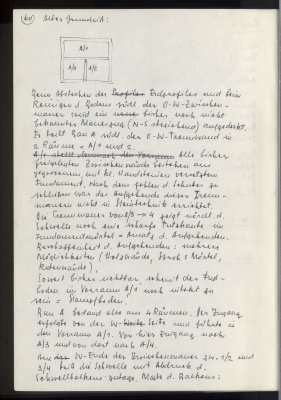 (60) Alter Grundriß:
A/1
A/3 A/2
Beim Abstechen des Profiles Erdprofiles und beim
Reinigen d. Bodens südl. der O-W-Zwischen-
mauer wird ein bisher noch nicht
bekannter Mauerzug (N-S streichend) aufgedeckt.
Er teilt Bau A südl. der O-W-Trennwand in
2 Räume = A/1 und 2.
A/1 stellt demnach den Vorraum Alle bisher
freigelegten Zwischenwände bestehen aus
gegossenem mit kl. Sandsteinen versetztem
Fundament. Nach dem Fehlen d. Schuttes zu
schließen war das Aufgehende dieser Trenn-
mauern nicht in Steintechnik errichtet.
Die Trennmauer von A/3 → 4 zeigt nördl. d.
Schwelle noch eine scharfe Putzkante im
Fundamentmörtel = Ansatz d. Aufgehenden.
Beschaffenheit d. Aufgehenden: mehrere
Möglichkeiten (Holzwände, Stroh + Mörtel,
Rutenwände).
Soweit bisher sichtbar scheint der Fuß-
boden im Vorraum A/1 noch intakt zu
sein = Stampfboden.
Bau A bestand also aus 4 Räumen. Der Zugang
erfolgte von der W-Seite und führte in
den Vorraum A/1. Von hier Zugang nach
A/3 und von dort nach A/4.
Am W-Ende der Zwischenmauer zw. 1/2 und
3/4 trat die Schwelle mit Abdruck d.
Schwellbalkens zutage. Maße d. Balkens: